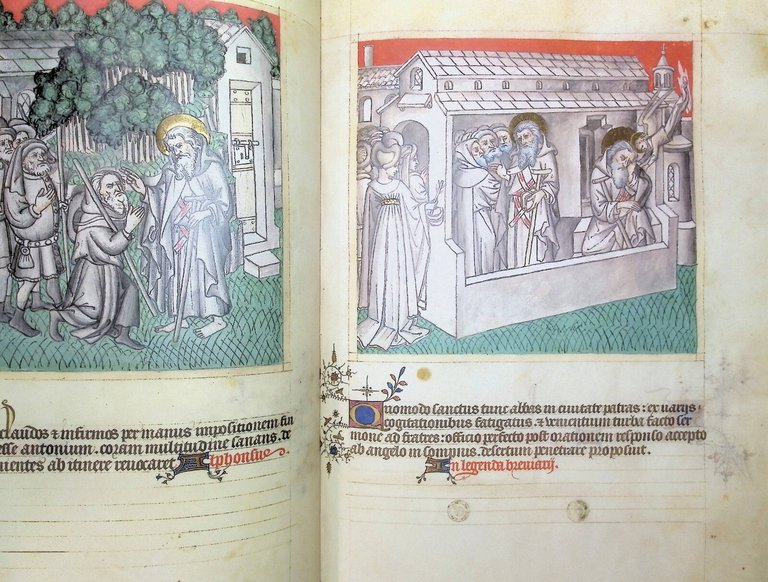 claudos ⁊ infirmos per manus impositionem
esse antonium. coram multitudine sanans. de
uientes ab itinere reuocaret. Alphonsus.
Quomodo sanctus tunc abbas in ciuitate patras: ex uarijs
cogitationibus fatigatus. ⁊ uementium turba facto ser
mone ad fratres: officio perfecto post orationem responso accepto
ab angelo in sompnis. desertum penetrare proposuit.
In legenda breuiarij.